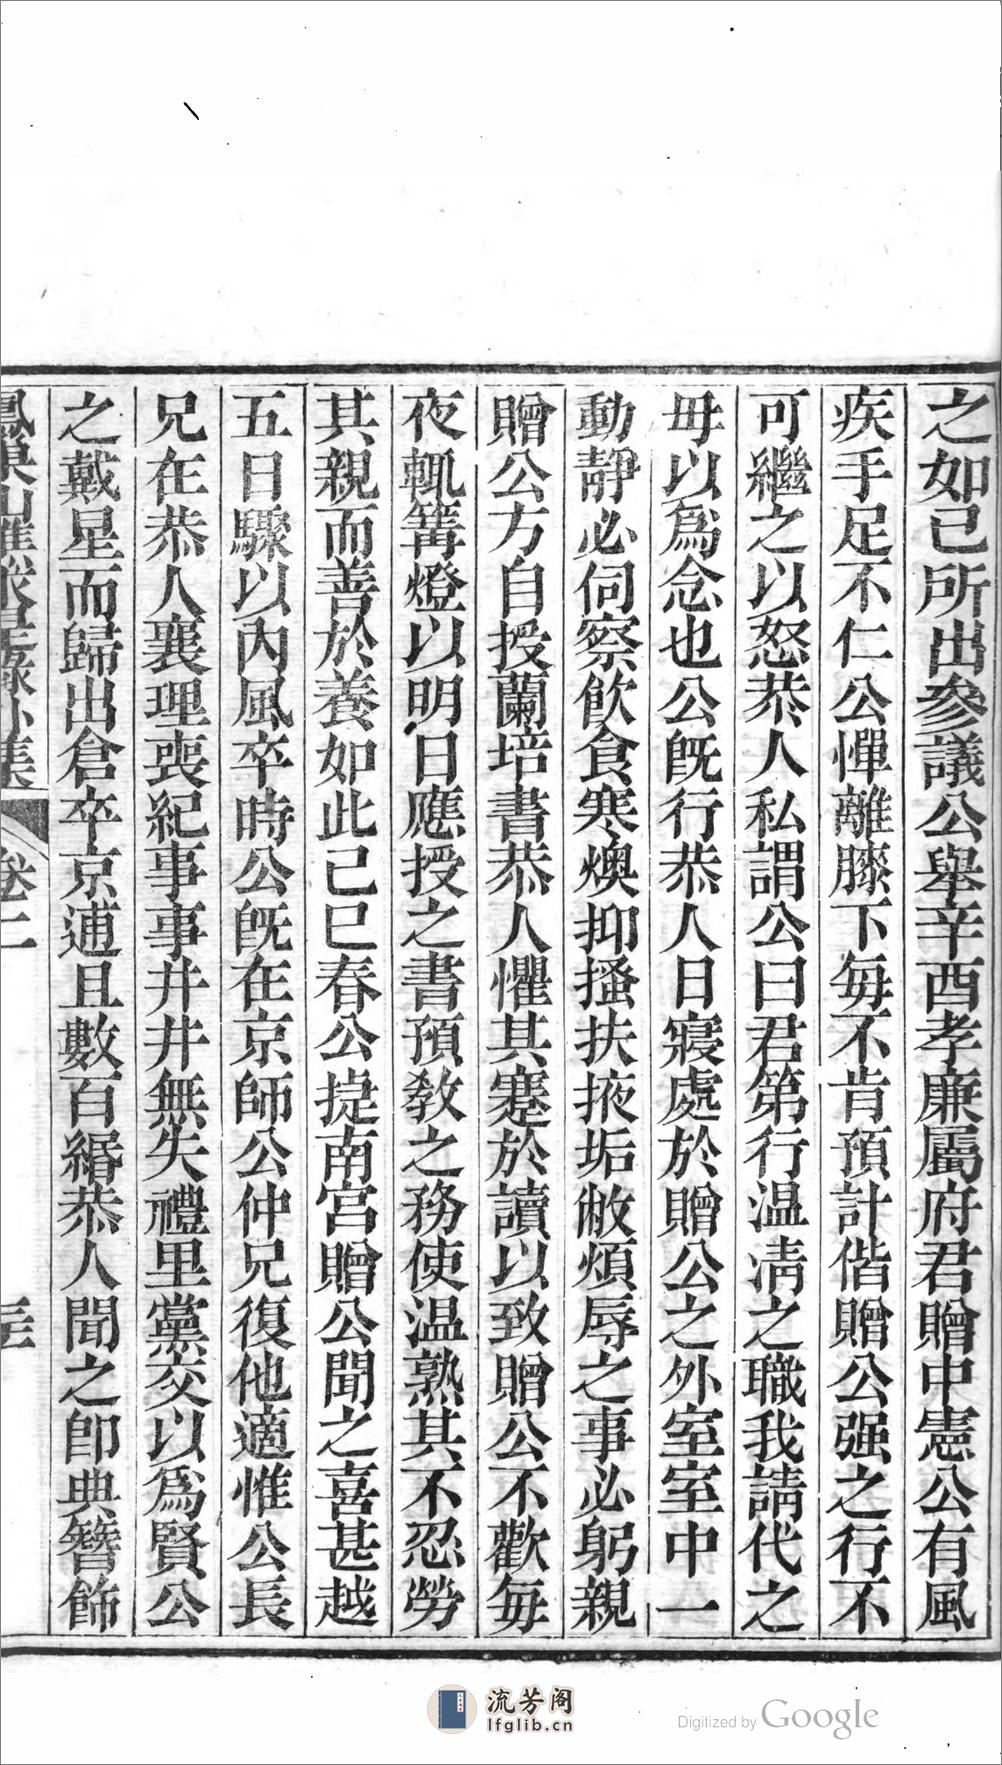 之如己所出參議公舉辛酉孝廉屬府君贈中憲公有風
疾手足不仁公憚離膝下每不肯預計偕贈公强之行不
可繼之以怒恭人私謂公曰君第行温凊之職我請代之
毋以爲念也公旣行恭人日寢處於贈公之外室室中一
動靜必伺察飲食寒燠抑搔扶掖垢敝煩辱之事必躬親
贈公方自授蘭培書恭人懼其蹇於讀以致贈公不歡每
夜輒篝燈以明日應授之書預敎之務使温熟其不忍勞
其親而善於養如此己巳春公捷南宮贈公聞之喜甚越
五日驟以內風卒時公旣在京師公仲兄復他適惟公長
兄在恭人襄理喪紀事事井井無失禮里黨交以爲賢公
之戴星而歸出倉卒京逋且數百緡恭人聞之卽典簪飾
卷二
三
流芳阁
lfglib.cn
Digitized by Google